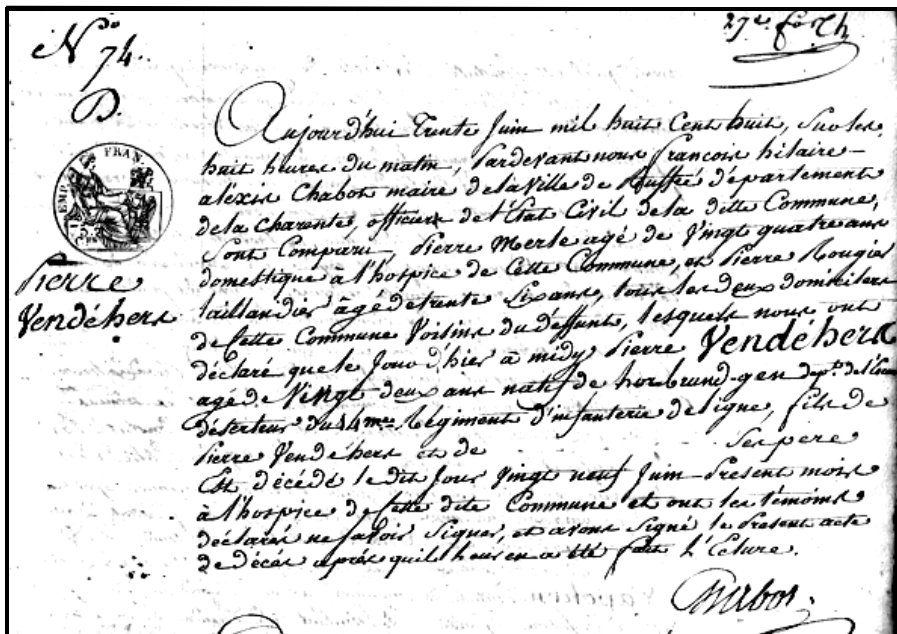 Ndo 74.
27e.
D.
EMP. FRAN.
Pierre
Vendéhers
Aujourd'hui Trente Juin mil huit Cent huit, Sur les
huit heures du matin, Pardevant nous françois hilaire
aléxis Chabot maire de la Ville de Ruffec département
de la Charente, officier de l'État Civil de la ditte Commune,
Sont Comparu, Pierre Merle agé de Vingt quatre ans
domestique à l'hospice de Cette Commune, et Pierre Rougier
taillandier âgé de trente Six ans, tous les deux domiciliers
de Cette Commune Voisins du deffunt, lesquels nous ont
déclaré que le Jour d'hier à midy Pierre Vendéhers
agé de Vingt deux ans natif de horbrund-gen dept. de
déserteur du 44me Régiment d'infanterie de ligne, fils de
Pierre Vendéhers et de Ses pere
Est décédé le dit Jour Vingt neuf Juin Present mois
à l'hospice de Cette dite Commune et ont les témoins
déclarés ne Savoir Signer, et avons Signé le Present acte
de décés après quil leur en a été fait L'Ecture.
Chabot